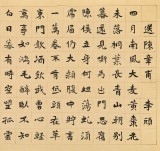 送陳章甫 李頎
四月南風大麥黃棗花
未落桐陰長青山朝別
暮還見嘶馬出門思舊
鄉陳侯立身何坦蕩虬
鬚虎眉仍大顙腹中貯
書一萬卷不肯低頭在
草莽東門酤酒飲我曹
心輕萬事皆鴻毛醉臥不知
白日暮有時空望孤雲